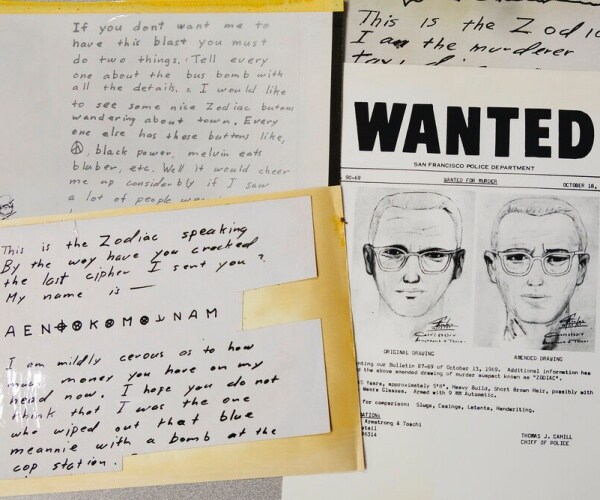 If you don't want me to
have this blast you must
do two things. Tell every
one about the bus bomb with
all the details. I would like
to see some nice Zodiac butons
wandering about town. Every
one else has these buttons like,
black power, melvin eats
blubber, etc. Well it would cheer
me up considerbly if I saw
a lot of people
This is the Zodiac speaking
By the way have you cracked
the last cipher I sent you?
My name is —
A E N ⌖ ⊕ K ⊕ M ⊕ ⅃ N A M
I am mildly cerous as to how
much money you have on my
head now. I hope you do not
think that I was the one
who wiped out that blue
meannie with a bomb at the
cop station.
This is the Zodiac
I am the murderer
WANTED
SAN FRANCISCO POLICE DEPARTMENT
90-69 WANTED FOR MURDER OCTOBER 18,
ORIGINAL DRAWING AMENDED DRAWING
ting our Bulletin 87-69 of October 13, 1969. Additional information has
the above amended drawing of murder suspect known as "ZODIAC".
45 Years, approximately 5'8", Heavy Build, Short Brown Hair, possibly with
Wears Glasses. Armed with 9 MM Automatic.
for comparison: Slugs, Casings, Latents, Handwriting.
Armstrong & Toschi
THOMAS J. CAHILL
CHIEF OF POLICE